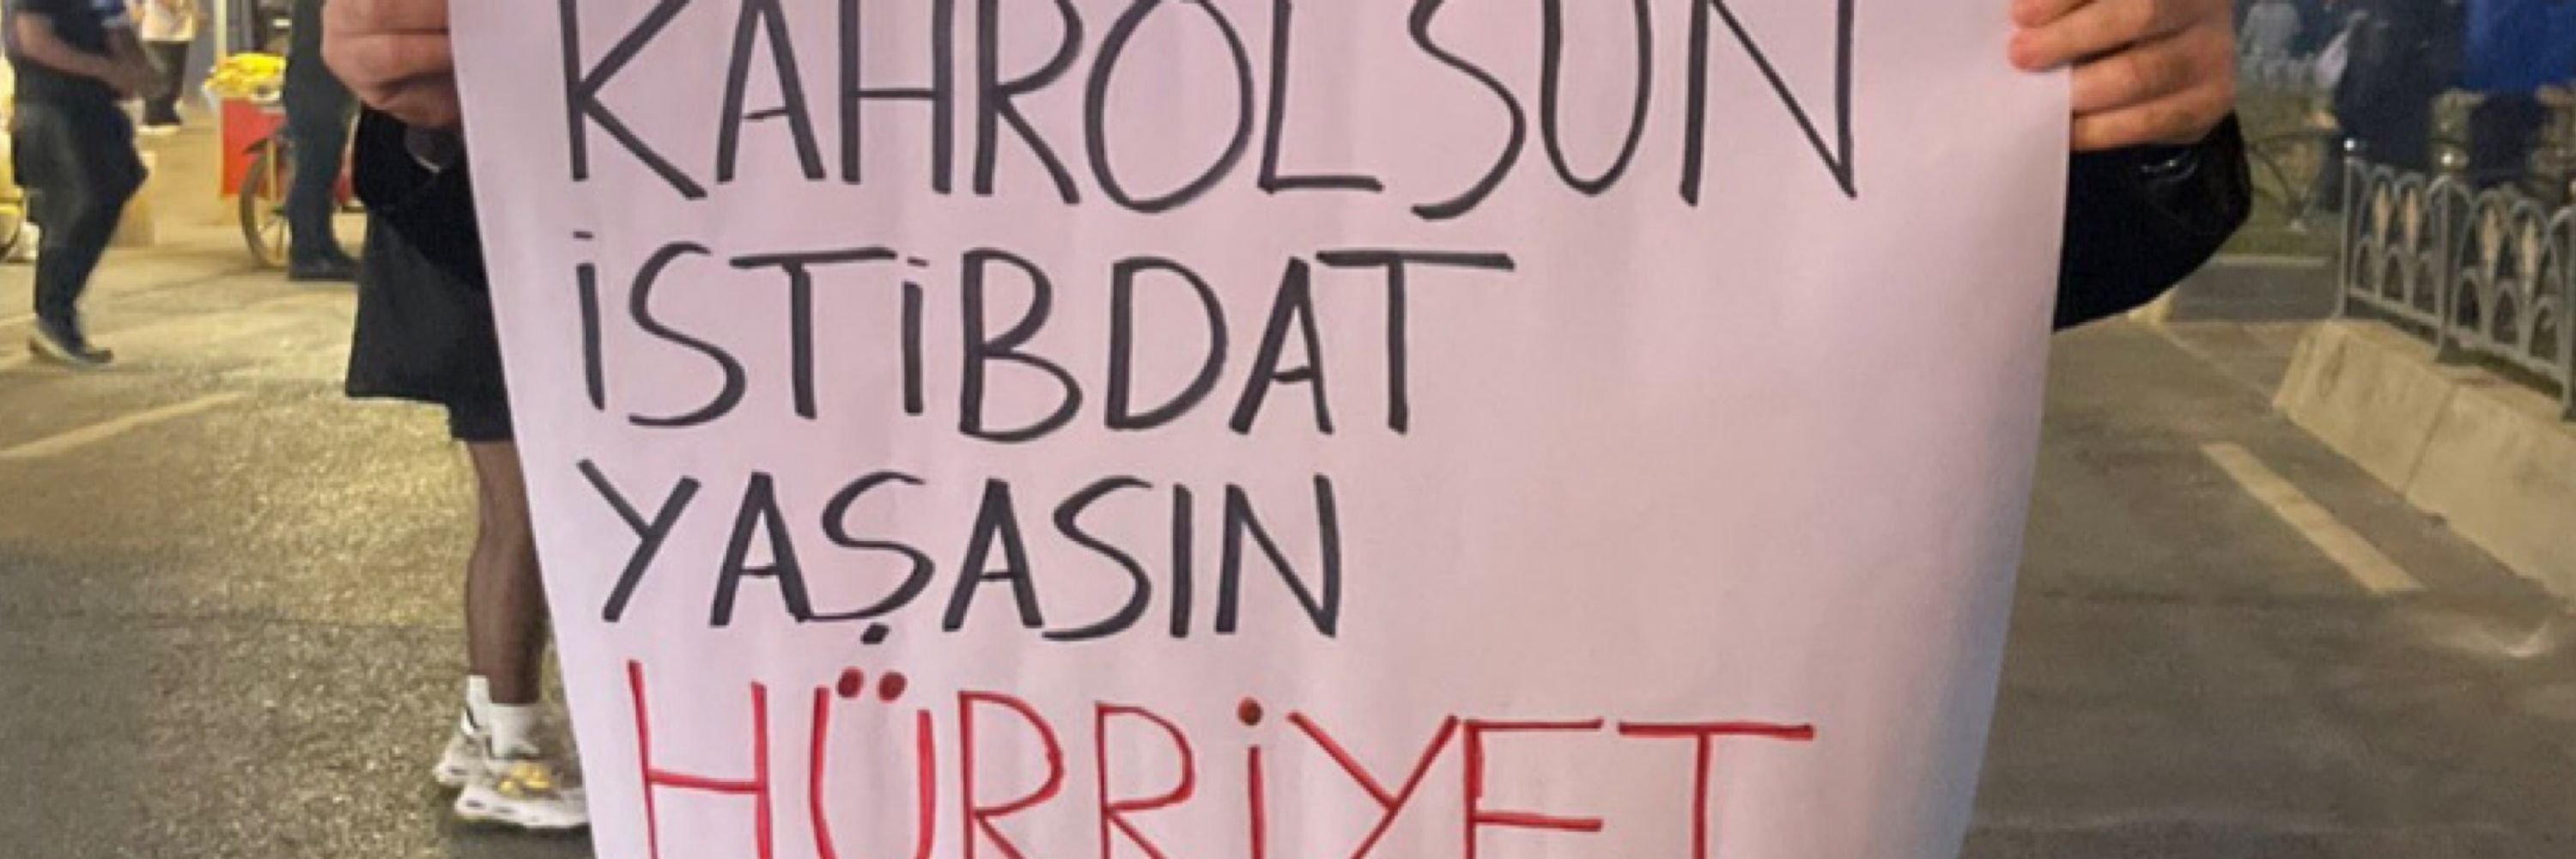 KAHROLSUN
İSTİBDAT
YAŞASIN
HÜRRİYET